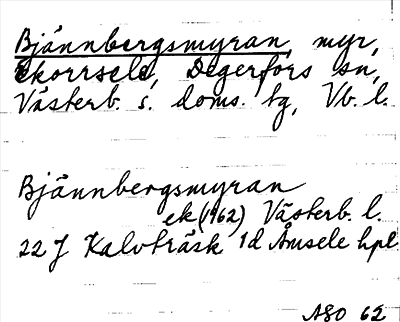 Bjännbergsmyran, myr,
Ekorrsele, Degerfors sn,
Västerb. s. doms. tg, Vb. l.
Bjännbergsmyran
ek (1962) Västerb. l.
22 J Kalvträsk 1d Åmsele hpl
ASO 62